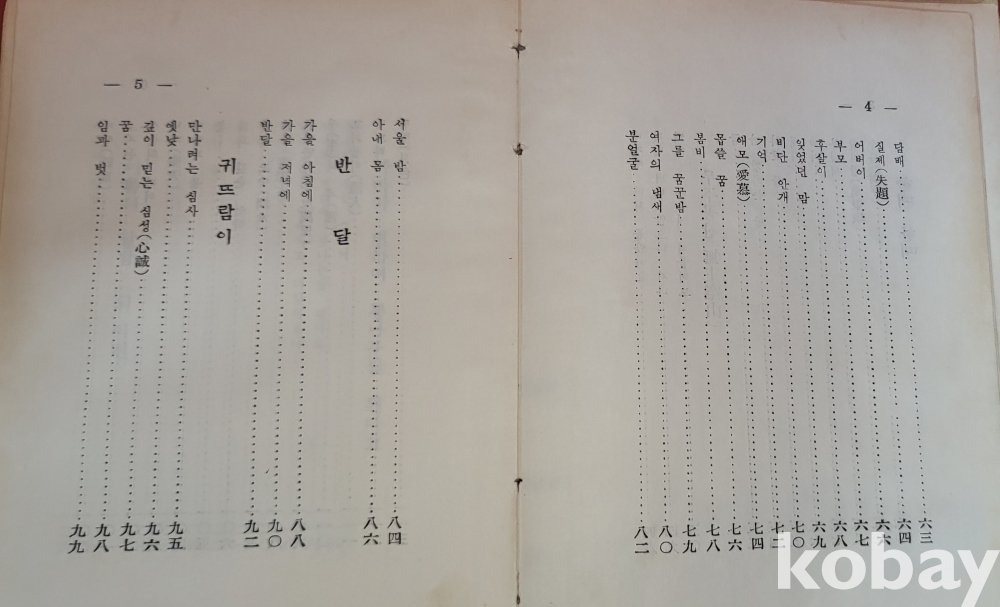 — 4 —
담배 六三
실제(失題) 六四
어버이 六六
부모 六七
후살이 六八
잊었던 맘 六九
비단 안개 七〇
기억 七二
애모(愛慕) 七四
몹쓸 꿈 七六
봄비 七八
그를 꿈꾼밤 七九
여자의 냄새 八〇
분얼굴 八二
— 5 —
서울 밤 八四
아내 몸 八六
반 달
가을 아침에 八八
가을 저녁에 九〇
반달 九二
귀뜨람이
만나려는 심사 九五
옛낯 九六
깊이 믿는 심성(心誠) 九七
꿈 九八
임과 벗 九九
kobay